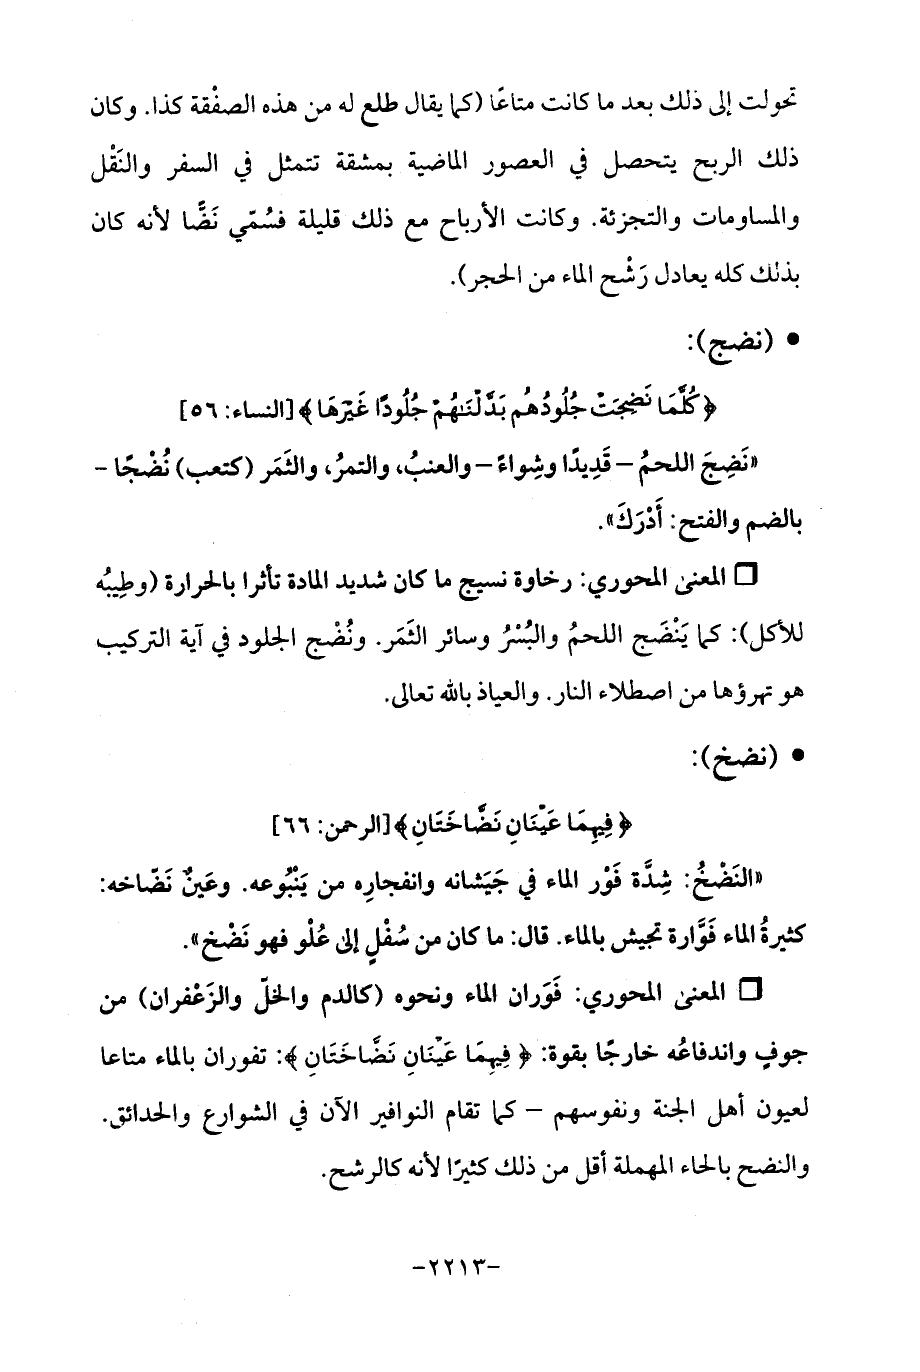 تحولت إلى ذلك بعد ما كانت متاعًا (كما يقال طلع له من هذه الصفْقة كذا. وكان
ذلك الربح يتحصل في العصور الماضية بمشقة تتمثل في السفر والنَقْل
والمساومات والتجزئة. وكانت الأرباح مع ذلك قليلة فسُمّي نَضًّا لأنه كان
بذلك كله يعادل رَشْح الماء من الحجر).
• (نضج):
﴿كُلَّمَا نَضِجَتْ جُلُودُهُم بَدَّلْنَٰهُمْ جُلُودًا غَيْرَهَا﴾ [النساء: ٥٦]
«نَضِجَ اللحمُ – قَدِيدًا وشِواءً – والعنبُ، والتمرُ، والثَمَر (كتعب) نُضْجًا –
بالضم والفتح: أَدْرَكَ».
❒ المعنى المحوري: رخاوة نسيج ما كان شديد المادة تأثرا بالحرارة (وطِيبُه
للأكل): كما يَنْضَج اللحمُ والبُسْرُ وسائر الثَمَر. ونُضْج الجلود في آية التركيب
هو تهرؤها من اصطلاء النار. والعياذ بالله تعالى.
• (نضخ):
﴿فِيهِمَا عَيْنَانِ نَضَّاخَتَانِ﴾ [الرحمن: ٦٦]
«النَضْخُ: شِدَّة فَوْر الماء في جَيَشانه وانفجارِه من يَنْبُوعه. وعَينٌ نَضّاخه:
كثيرةُ الماء فَوَّارة تجيش بالماء. قال: ما كان من سُفْلٍ إلى عُلْو فهو نَضْخ».
❒ المعنى المحوري: فَوَران الماء ونحوه (كالدم والخلّ والزَعْفران) من
جوفٍ واندفاعُه خارجًا بقوة: ﴿فِيهِمَا عَيْنَانِ نَضَّاخَتَانِ﴾: تفوران بالماء متاعا
لعيون أهل الجنة ونفوسهم – كما تقام النوافير الآن في الشوارع والحدائق.
والنضح بالحاء المهملة أقل من ذلك كثيرًا لأنه كالرشح.
-٢٢١٣-